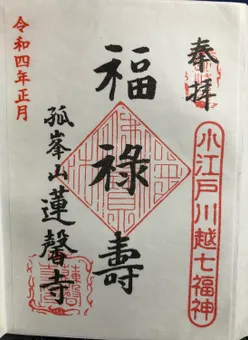 奉拝
小江戸川越七福神
福禄壽
孤峯山蓮馨寺
令和四年正月